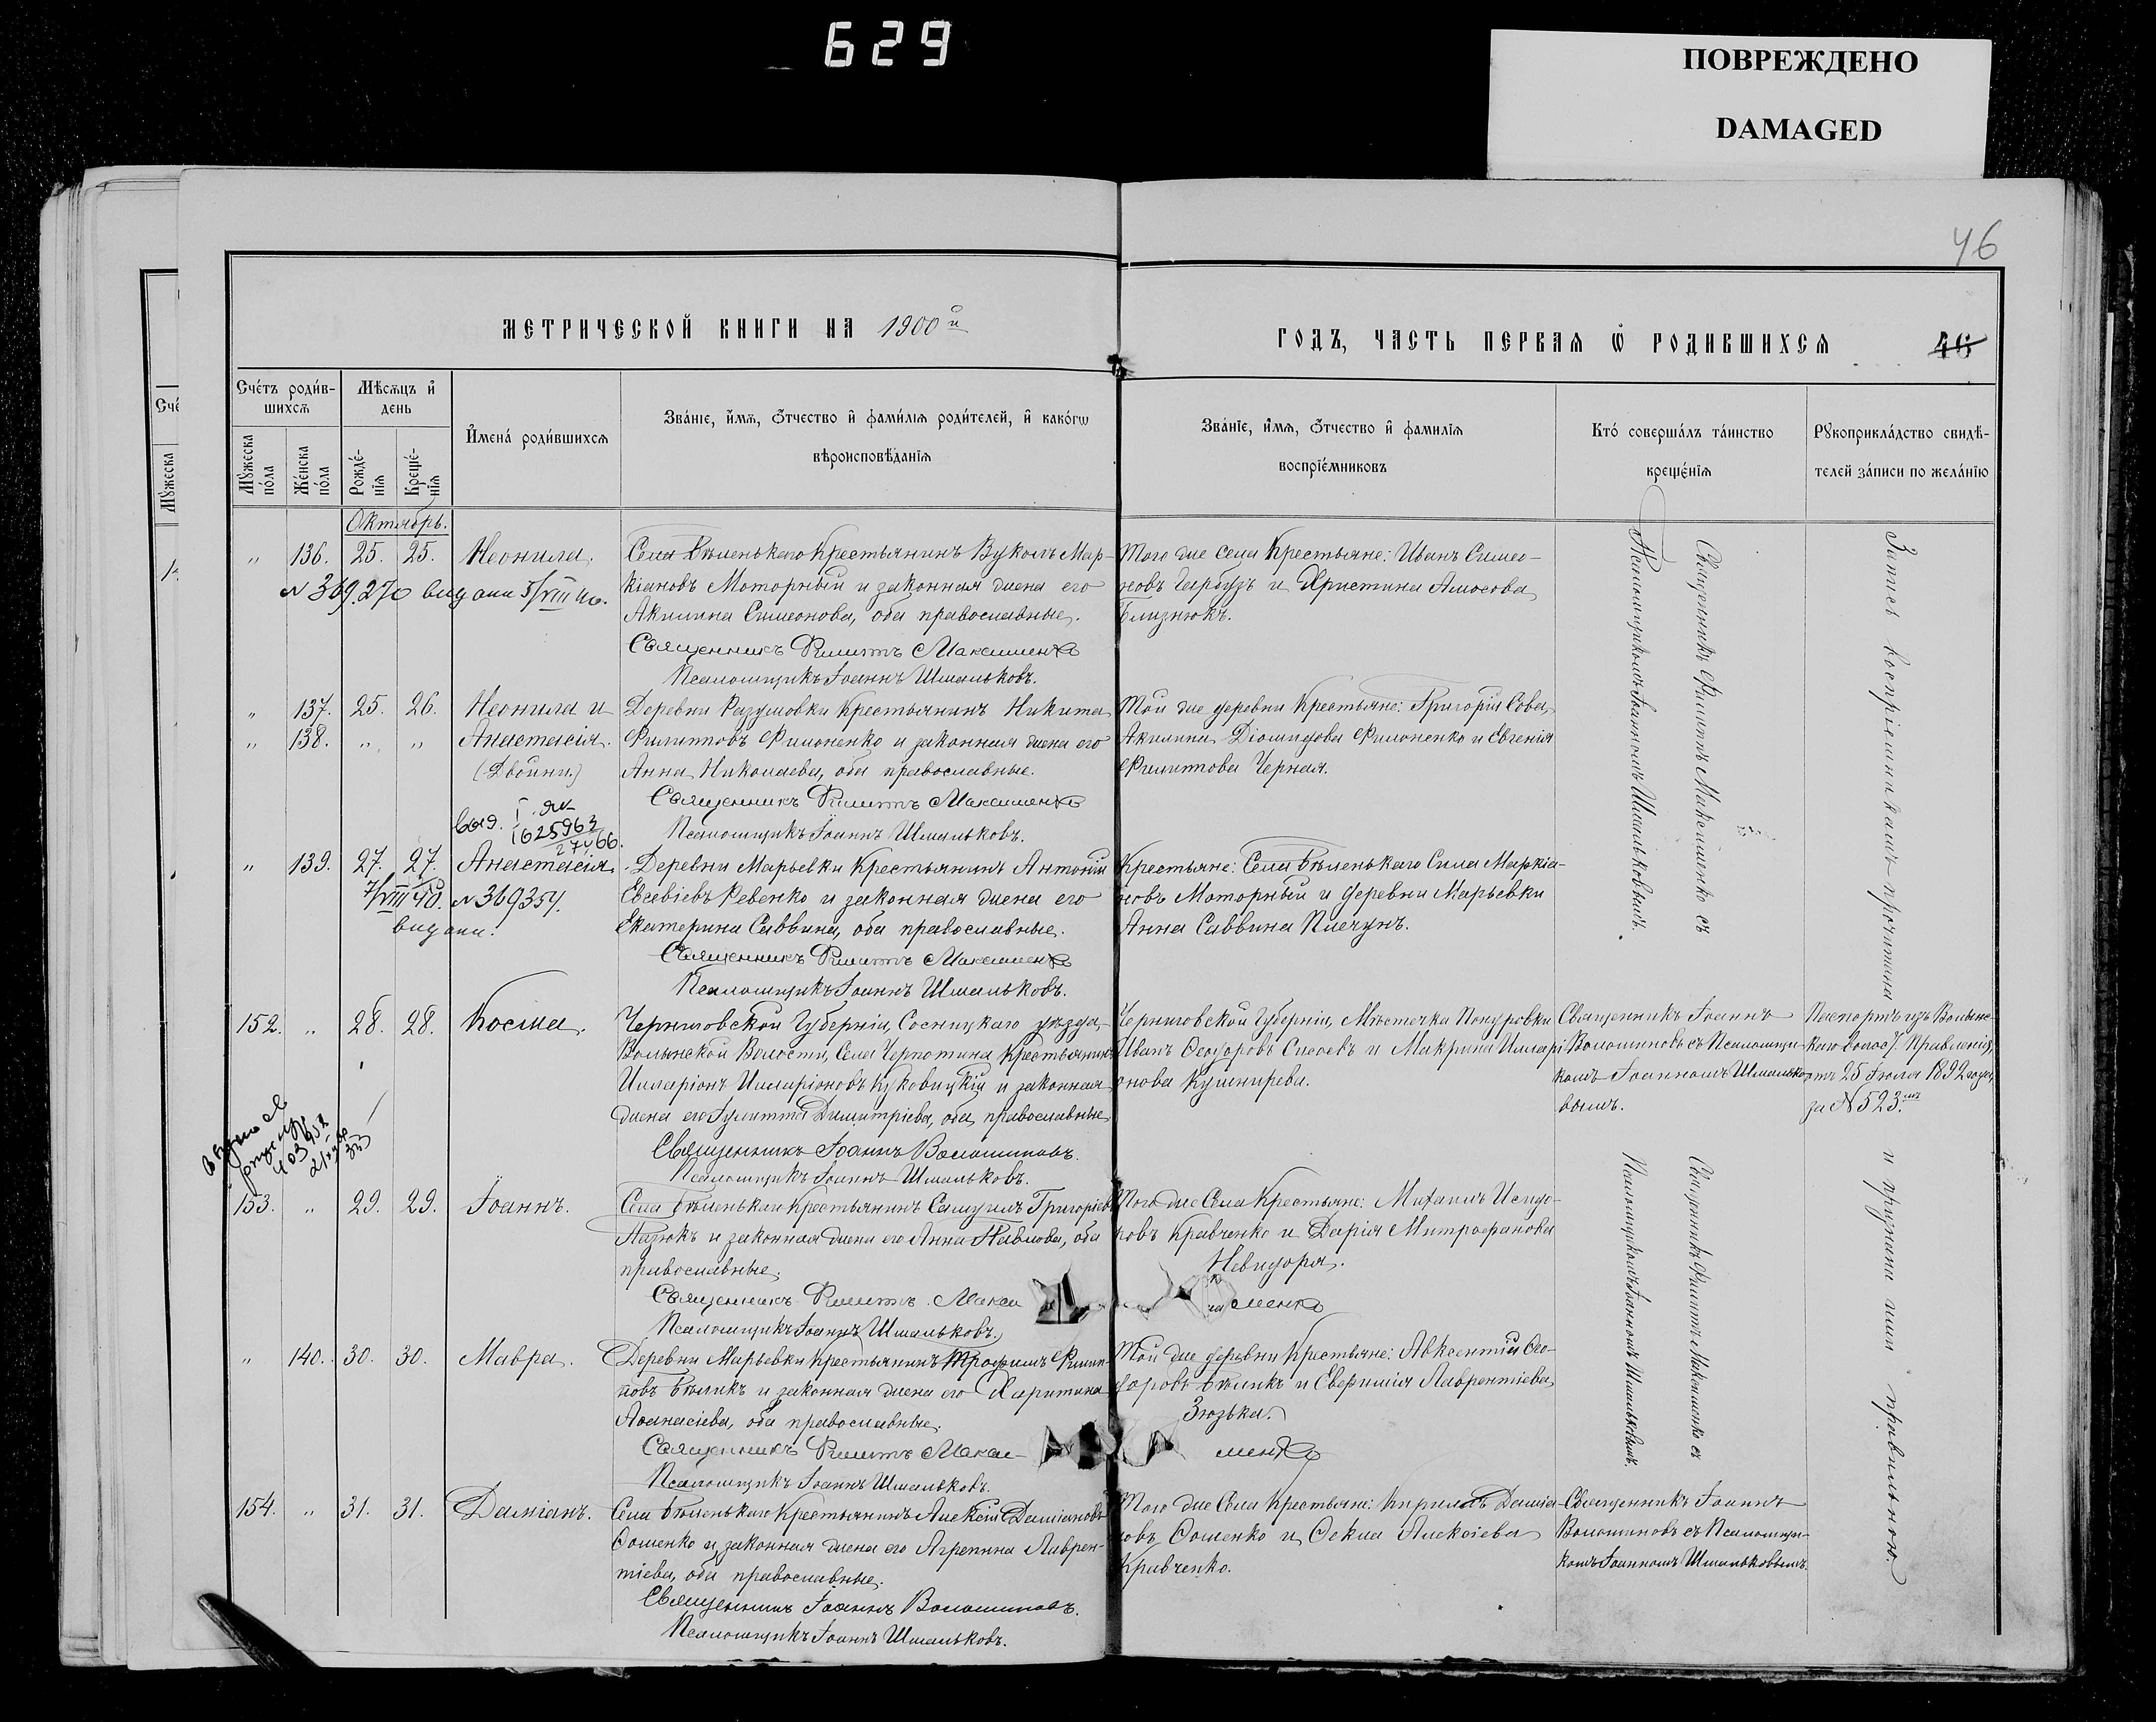 629
ПОВРЕЖДЕНО
DAMAGED
46
МЕТРИЧЕСКОЙ КНИГИ НА 1900й
ГОДЪ, ЧАСТЬ ПЕРВАЯ Ѿ РОДИВШИХСЯ
46
Сче́тъ роди́в-
шихсѧ
Мѣсѧцъ и҆
день
И҆мена́ роди́вшихсѧ
Зва́нїе, и҆́мѧ, ѻ҆́тчество и҆ фами́лїѧ роди́телей, и҆ како́гѡ
вѣроисповѣ́данїѧ
Зва́нїе, и҆́мѧ, ѻ҆́тчество и҆ фами́лїѧ
воспрїе́мниковъ
Кто́ соверша́лъ та́инство
креще́нїѧ
Рꙋкоприкла́дство свидѣ́-
телей за́писи по жела́нїю
Мꙋ́жеска
по́ла
Же́нска
по́ла
Рожде́-
нїѧ
Креще́-
нїѧ
Октябрь.
" 136. 25. 25. Неонила.
Села Бѣленькаго Крестьянинъ Вуколъ Мар-
кіановъ Моторный и законная жена его
Акилина Симеонова, оба православные.
Священникъ Филиппъ Максименко
Псаломщикъ Іоаннъ Шмальковъ.
Того же села Крестьяне: Иванъ Симео-
новъ Гарбузъ и Христина Амосова
Близнюкъ.
N 369270 выдано 5/VIII 40.
" 137. 25. 26. Неонила и
" 138. " " Анастасія.
(Двойни.)
Деревни Разумовки Крестьянинъ Никита
Филипповъ Филоненко и законная жена его
Анна Николаева, оба православные.
Священникъ Филиппъ Максименко
Псаломщикъ Іоаннъ Шмальковъ.
Той же деревни Крестьяне: Григорій Сова,
Акилина Діомидова Филоненко и Евгенія
Филиппова Черная.
Священникъ Филиппъ Максименко съ
Псаломщикомъ Іоанномъ Шмальковымъ.
выд. I ЯК
1625963
27У66.
" 139. 27. 27. Анастасія.
7/VIII 40. N 369354.
выдано.
Деревни Марьевки Крестьянинъ Антоній
Евсевіевъ Ревенко и законная жена его
Екатерина Саввина, оба православные.
Священникъ Филиппъ Максименко
Псаломщикъ Іоаннъ Шмальковъ.
Крестьяне: Села Бѣленькаго Сила Маркіа-
новъ Моторный и деревни Марьевки
Анна Саввина Плечунъ.
152. " 28. 28. Косма.
Черниговской Губерніи, Сосницкаго уѣзда,
Волынской Волости, Села Чепотина Крестьянинъ
Илларіонъ Илларіоновъ Куковицкій и законная
жена его Іулитта Димитріева, оба православные.
Священникъ Іоаннъ Волошиновъ.
Псаломщикъ Іоаннъ Шмальковъ.
Черниговской Губерніи, Мѣстечка Понуровки
Иванъ Ѳеодоровъ Сысоевъ и Макрина Иллари-
онова Кушнирева.
Священникъ Іоаннъ
Волошиновъ съ Псаломщи-
комъ Іоанномъ Шмалько-
вымъ.
Паспортъ изъ Волынс-
каго Волос. Правленія,
отъ 25 Іюля 1892 года,
за N 523.мъ
Запись воспріемниками прочитана и признана ими правильною.
153. " 29. 29. Іоаннъ.
Села Бѣленькаго Крестьянинъ Самуилъ Григорьевъ
Пазюкъ и законная жена его Анна Павлова, оба
православные.
Священникъ Филиппъ Максименко
Псаломщикъ Іоаннъ Шмальковъ.
Того же Села Крестьяне: Михаилъ Исидо-
ровъ Кравченко и Дарія Митрофанова
Невидоря.
Священникъ Филиппъ Максименко съ
Псаломщикомъ Іоанномъ Шмальковымъ.
" 140. 30. 30. Мавра.
Деревни Марьевки Крестьянинъ Трофимъ Филип-
повъ Бѣликъ и законная жена его Харитина
Аѳанасіева, оба православные.
Священникъ Филиппъ Макси-
менко
Псаломщикъ Іоаннъ Шмальковъ.
Той же деревни Крестьяне: Авксентій Ѳео-
доровъ Бѣликъ и Евфимія Лаврентіева
Зюзька.
154. " 31. 31. Даміанъ.
Села Бѣленькаго Крестьянинъ Алексій Даміановъ
Ѳоменко и законная жена его Агрепина Лаврен-
тіева, оба православные.
Священникъ Іоаннъ Волошиновъ.
Псаломщикъ Іоаннъ Шмальковъ.
Того же Села Крестьяне: Кириллъ Даміа-
новъ Ѳоменко и Ѳекла Алексіева
Кравченко.
Священникъ Іоаннъ
Волошиновъ съ Псаломщи-
комъ Іоанномъ Шмальковымъ.